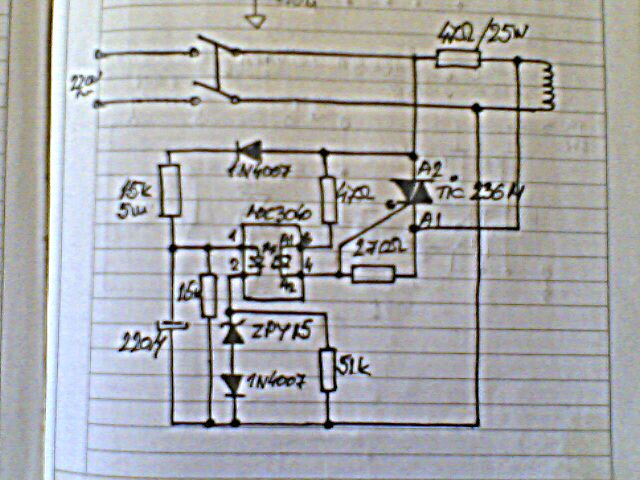 47Ω/25W
220V
~
1N4007
A2
TIC 236M
15k
5W
47Ω
MOC3040
A1
1
A1
6
270Ω
2
4
A2
15k
220µ
ZPY15
51k
1N4007